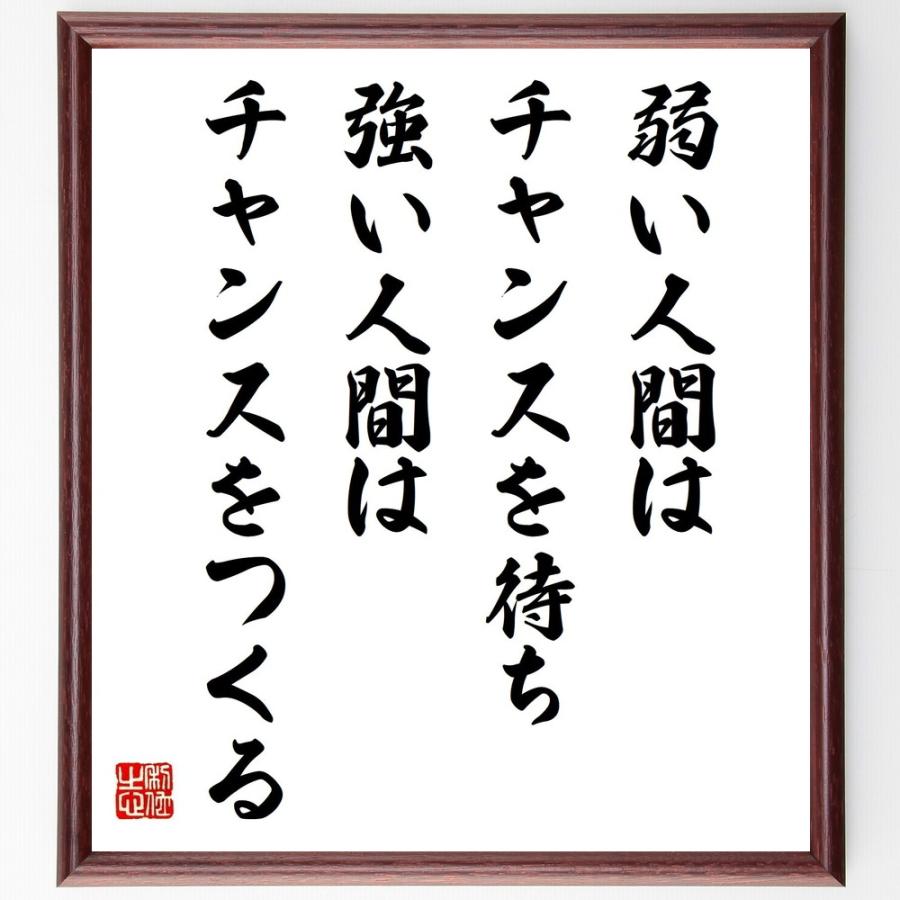 弱い人間は
チャンスを待ち
強い人間は
チャンスをつくる